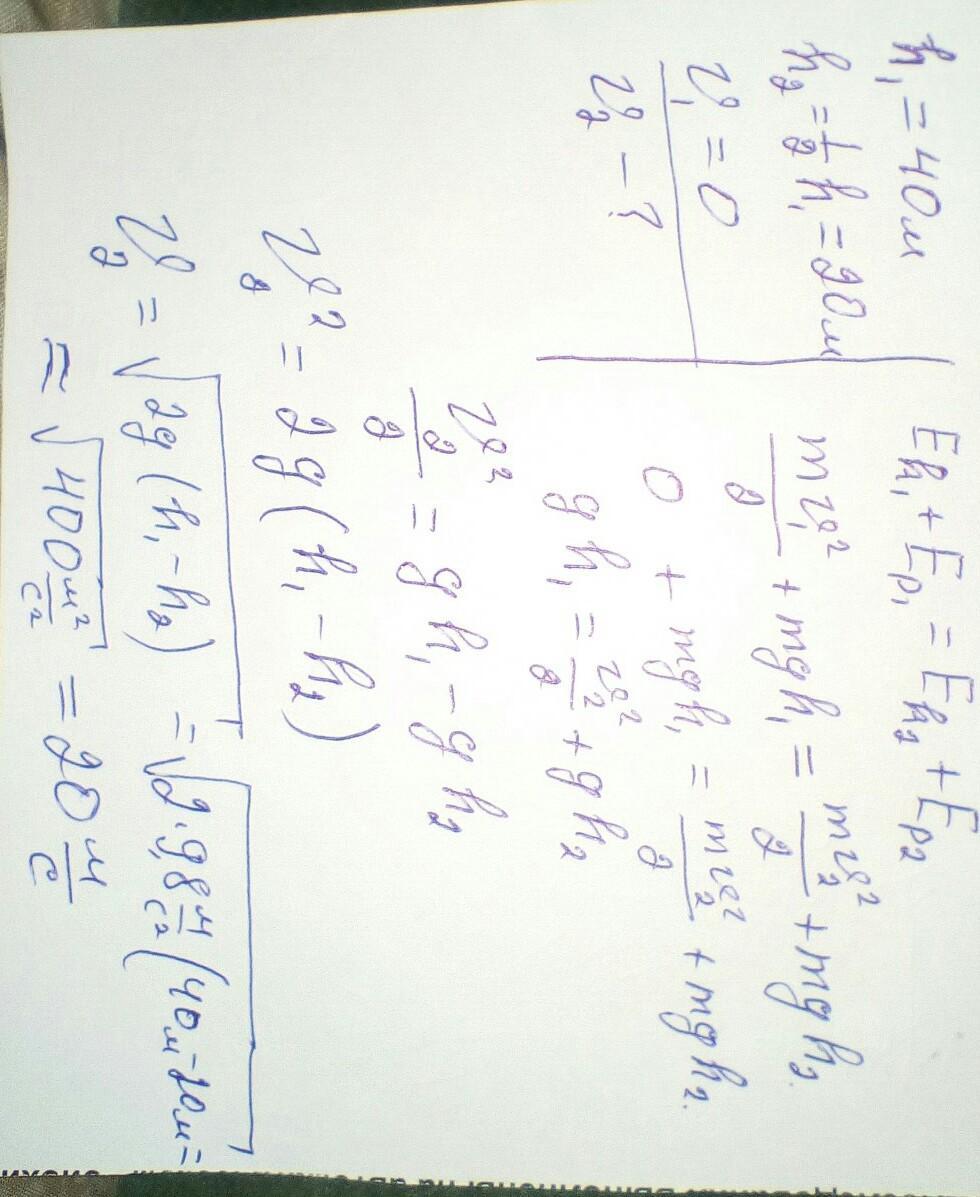 h₁ = 40м
h₂ = 1/2 h₁ = 20м
υ₁ = 0
υ₂ – ?
Eh₁ + Ep₁ = Eh₂ + Ep₂
mυ₁²/2 + mgh₁ = mυ₂²/2 + mgh₂.
0 + mgh₁ = mυ₂²/2 + mgh₂.
gh₁ = υ₂²/2 + gh₂
υ₂²/2 = gh₁ – gh₂
υ₂² = 2g(h₁ – h₂)
υ₂ = √2g(h₁ – h₂) = √2·9,8 м/с² (40м – 20м =
≈ √400 м²/с² = 20 м/с